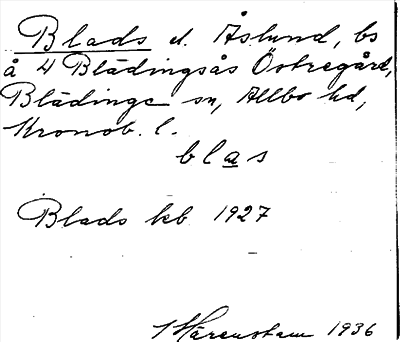 Blads el. Åslund, bs
å 4 Blädingsås Östregård,
Blädinge sn, Allbo hd,
Kronob. l.
blas
Blads kb 1927
Härenstam 1936